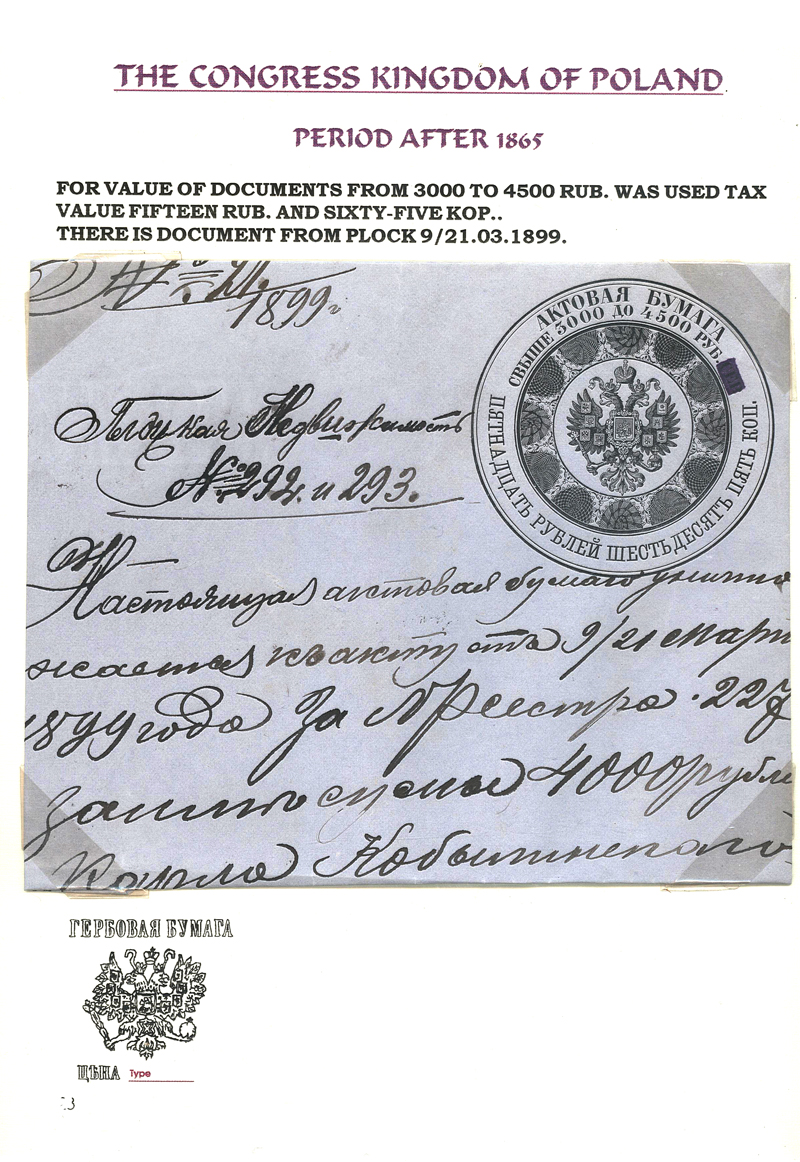 THE CONGRESS KINGDOM OF POLAND
PERIOD AFTER 1865
FOR VALUE OF DOCUMENTS FROM 3000 TO 4500 RUB. WAS USED TAX
VALUE FIFTEEN RUB. AND SIXTY-FIVE KOP..
THERE IS DOCUMENT FROM PLOCK 9/21.03.1899.
1899г
АКТОВАЯ БУМАГА
СВЫШЕ 3000 ДО 4500 РУБ.
ПЯТНАДЦАТЬ РУБЛЕЙ ШЕСТЬДЕСЯТЪ ПЯТЬ КОП.
Плоцкая Недвижимость
№ 292 и 293.
Настоящая актовая бумага уничто
жается къ акту отъ 9/21 Марта
1899 года За № Реестра 227
суммы 4000 рубле
Карла Кобылинскаго
ГЕРБОВАЯ БУМАГА
ЦѢНА Type